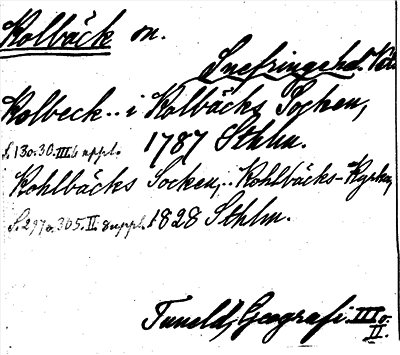 Kolbäck sn.
Snefringe hd. Vstm
Kolbeck.. i Kolbäcks Socken,
s. 13 o. 30. III. 6 uppl. 1787 Sthlm.
Kohlbäcks Socken,.. Kohlbäcks-Kyrka,
S. 297 o. 305. II. 8 uppl. 1828 Sthlm.
Tuneld, Geografi. III o. II.